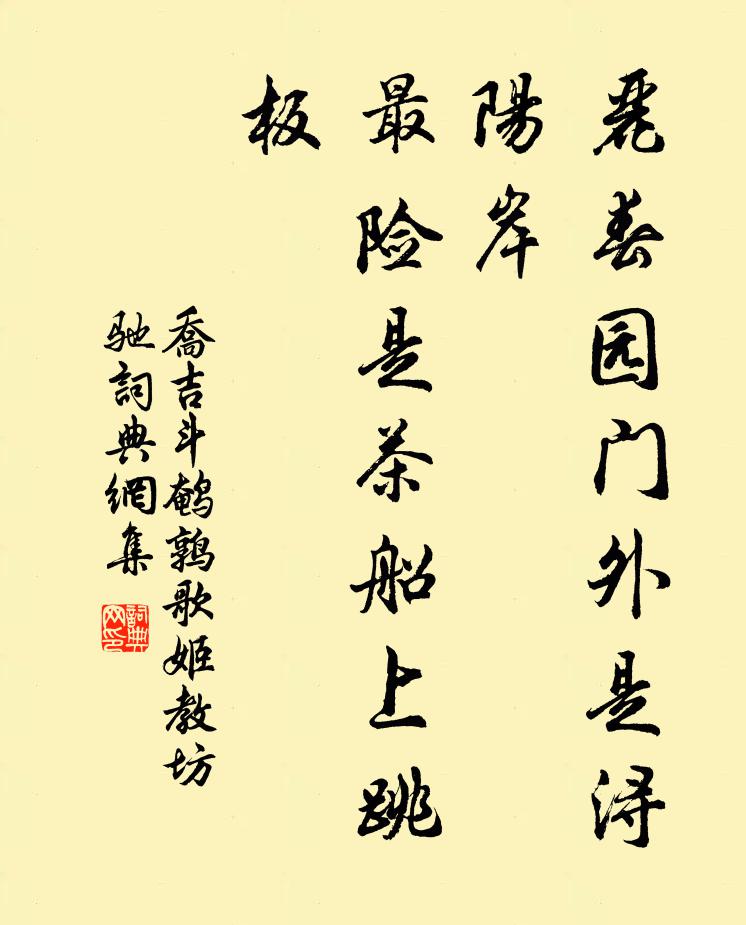 麗春园门外是浔
陽岸
最险是茶船上跳
板
喬吉斗鹌鹑歌姬教坊
驰詞典網集
詞典
网印